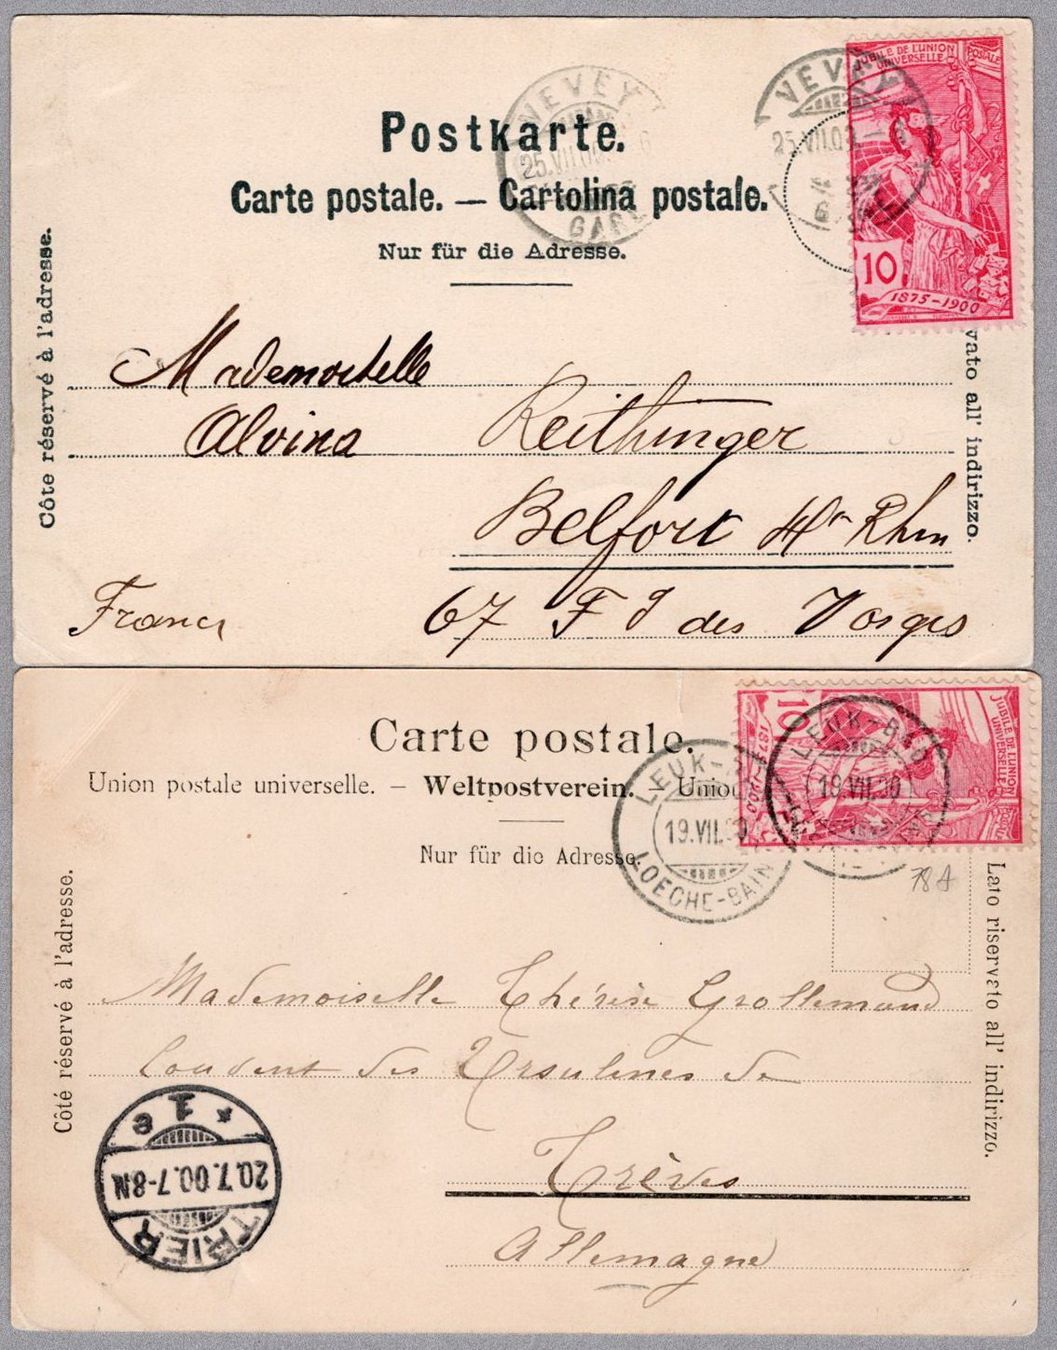 Postkarte.
Carte postale. — Cartolina postale.
Nur für die Adresse.
Côte réservé à l'adresse.
vato all' indirizzo.
VEVEY
25.VII.00
GARE
VEVEY
25.VII.00.— 6
JUBILÉ DE L'UNION POSTALE
UNIVERSELLE
10
1875-1900
Mademoiselle
Alvina Reithinger
Belfort Ht Rhin
67 F g des Vosges
France
Carte postale.
Union postale universelle. – Weltpostverein. – Union
Nur für die Adresse.
Côté réservé à l'adresse.
Lato riservato all' indirizzo.
LEUK-
19.VII.00
LOECHE-BAIN
LEUK-BAD
19.VII.00
JUBILE DE L'UNION
UNIVERSELLE
10
78 A
Mademoiselle Thérèse Grollemund
Couvent des Ursulines de
Trèves
Allemagne
TRIER
20.7.00.7-8N
* 1 e